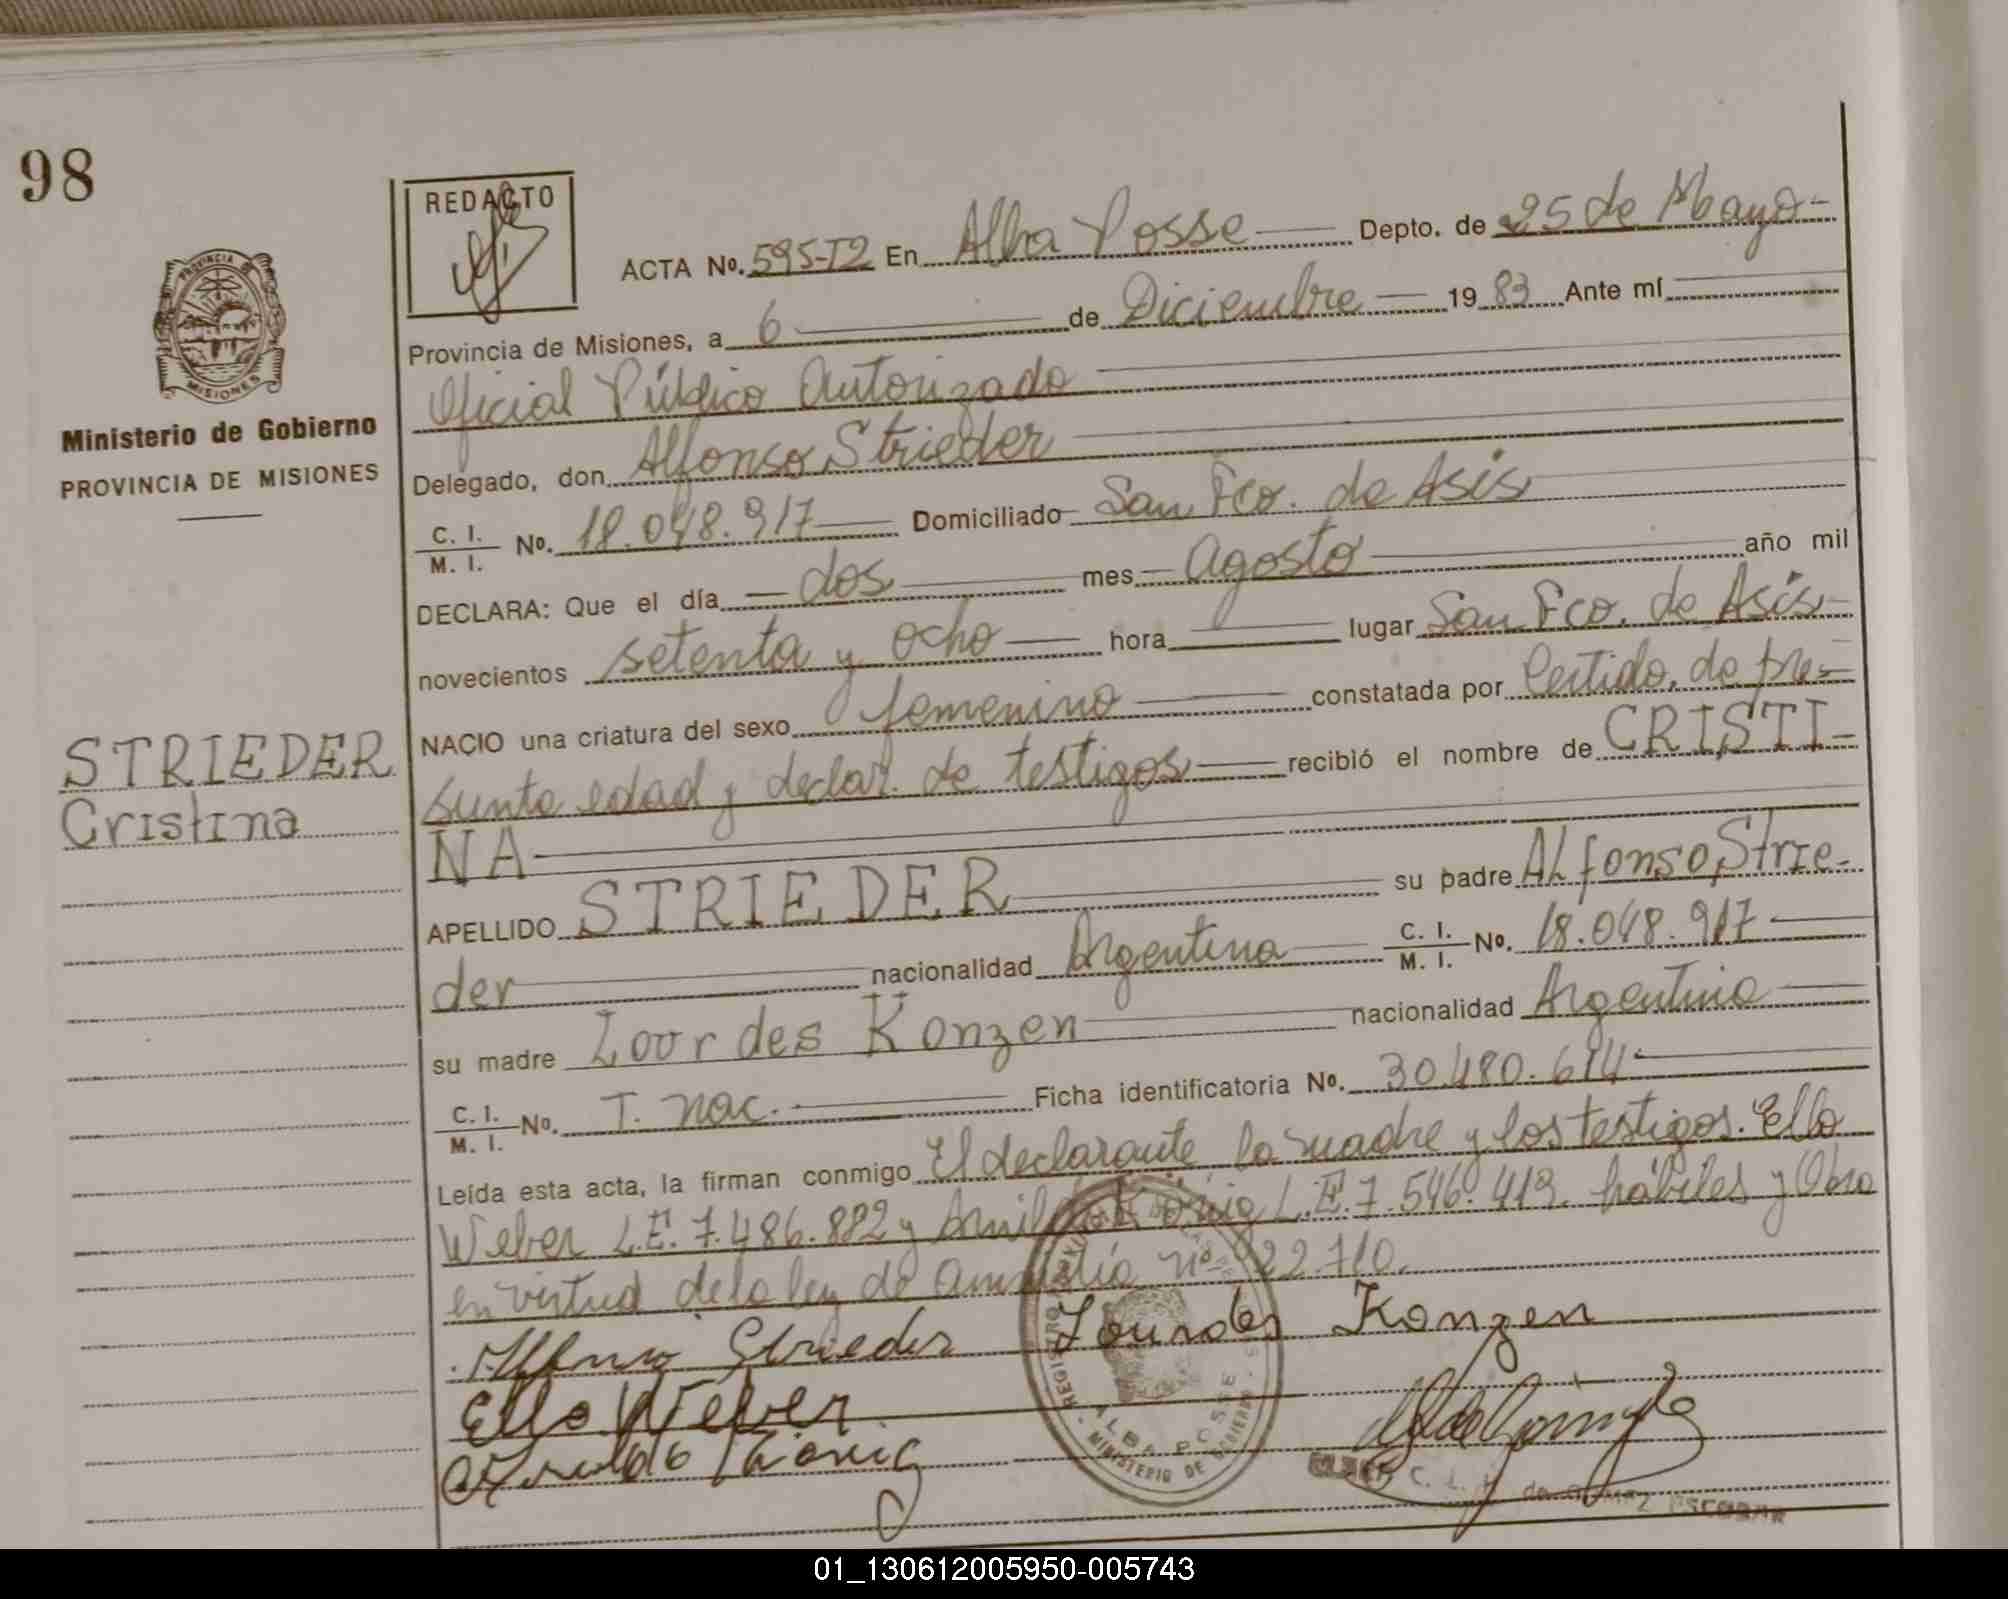 98
REDACTO
ACTA No. 595-T2 En Alba Posse Depto. de 25 de Mayo
Provincia de Misiones, a 6 de Diciembre 1983 Ante mí
Oficial Público Autorizado
Delegado, don Alfonso Strieder
C. I. M. I. No. 18.048.917 Domiciliado San Fco. de Asis
DECLARA: Que el día dos mes Agosto año mil
novecientos setenta y ocho hora lugar San Fco. de Asis
NACIO una criatura del sexo femenino constatada por Certido. de pre-
sunta edad y declar. de testigos recibió el nombre de CRISTI-
NA
APELLIDO STRIEDER su padre ALfonso Strie-
der nacionalidad Argentina C. I. M. I. No. 18.048.917
su madre Lourdes Konzen nacionalidad Argentina
C. I. M. I. No. T. nac. Ficha identificatoria No. 30.480.614
Leída esta acta, la firman conmigo El declarante la madre y los testigos. Ello
Weber L.E. 7.486.882 y L.E. 7.546.419. hábiles y Obra
en virtud de la ley de amnistía nº 22.710.
Alfonso Strieder Lourdes Konzen
Ello Weber
PROVINCIA DE
MISIONES
Ministerio de Gobierno
PROVINCIA DE MISIONES
STRIEDER
Cristina
ALBA POSSE
MINISTERIO DE GOBIERNO
ESCOBAR
01_130612005950-005743